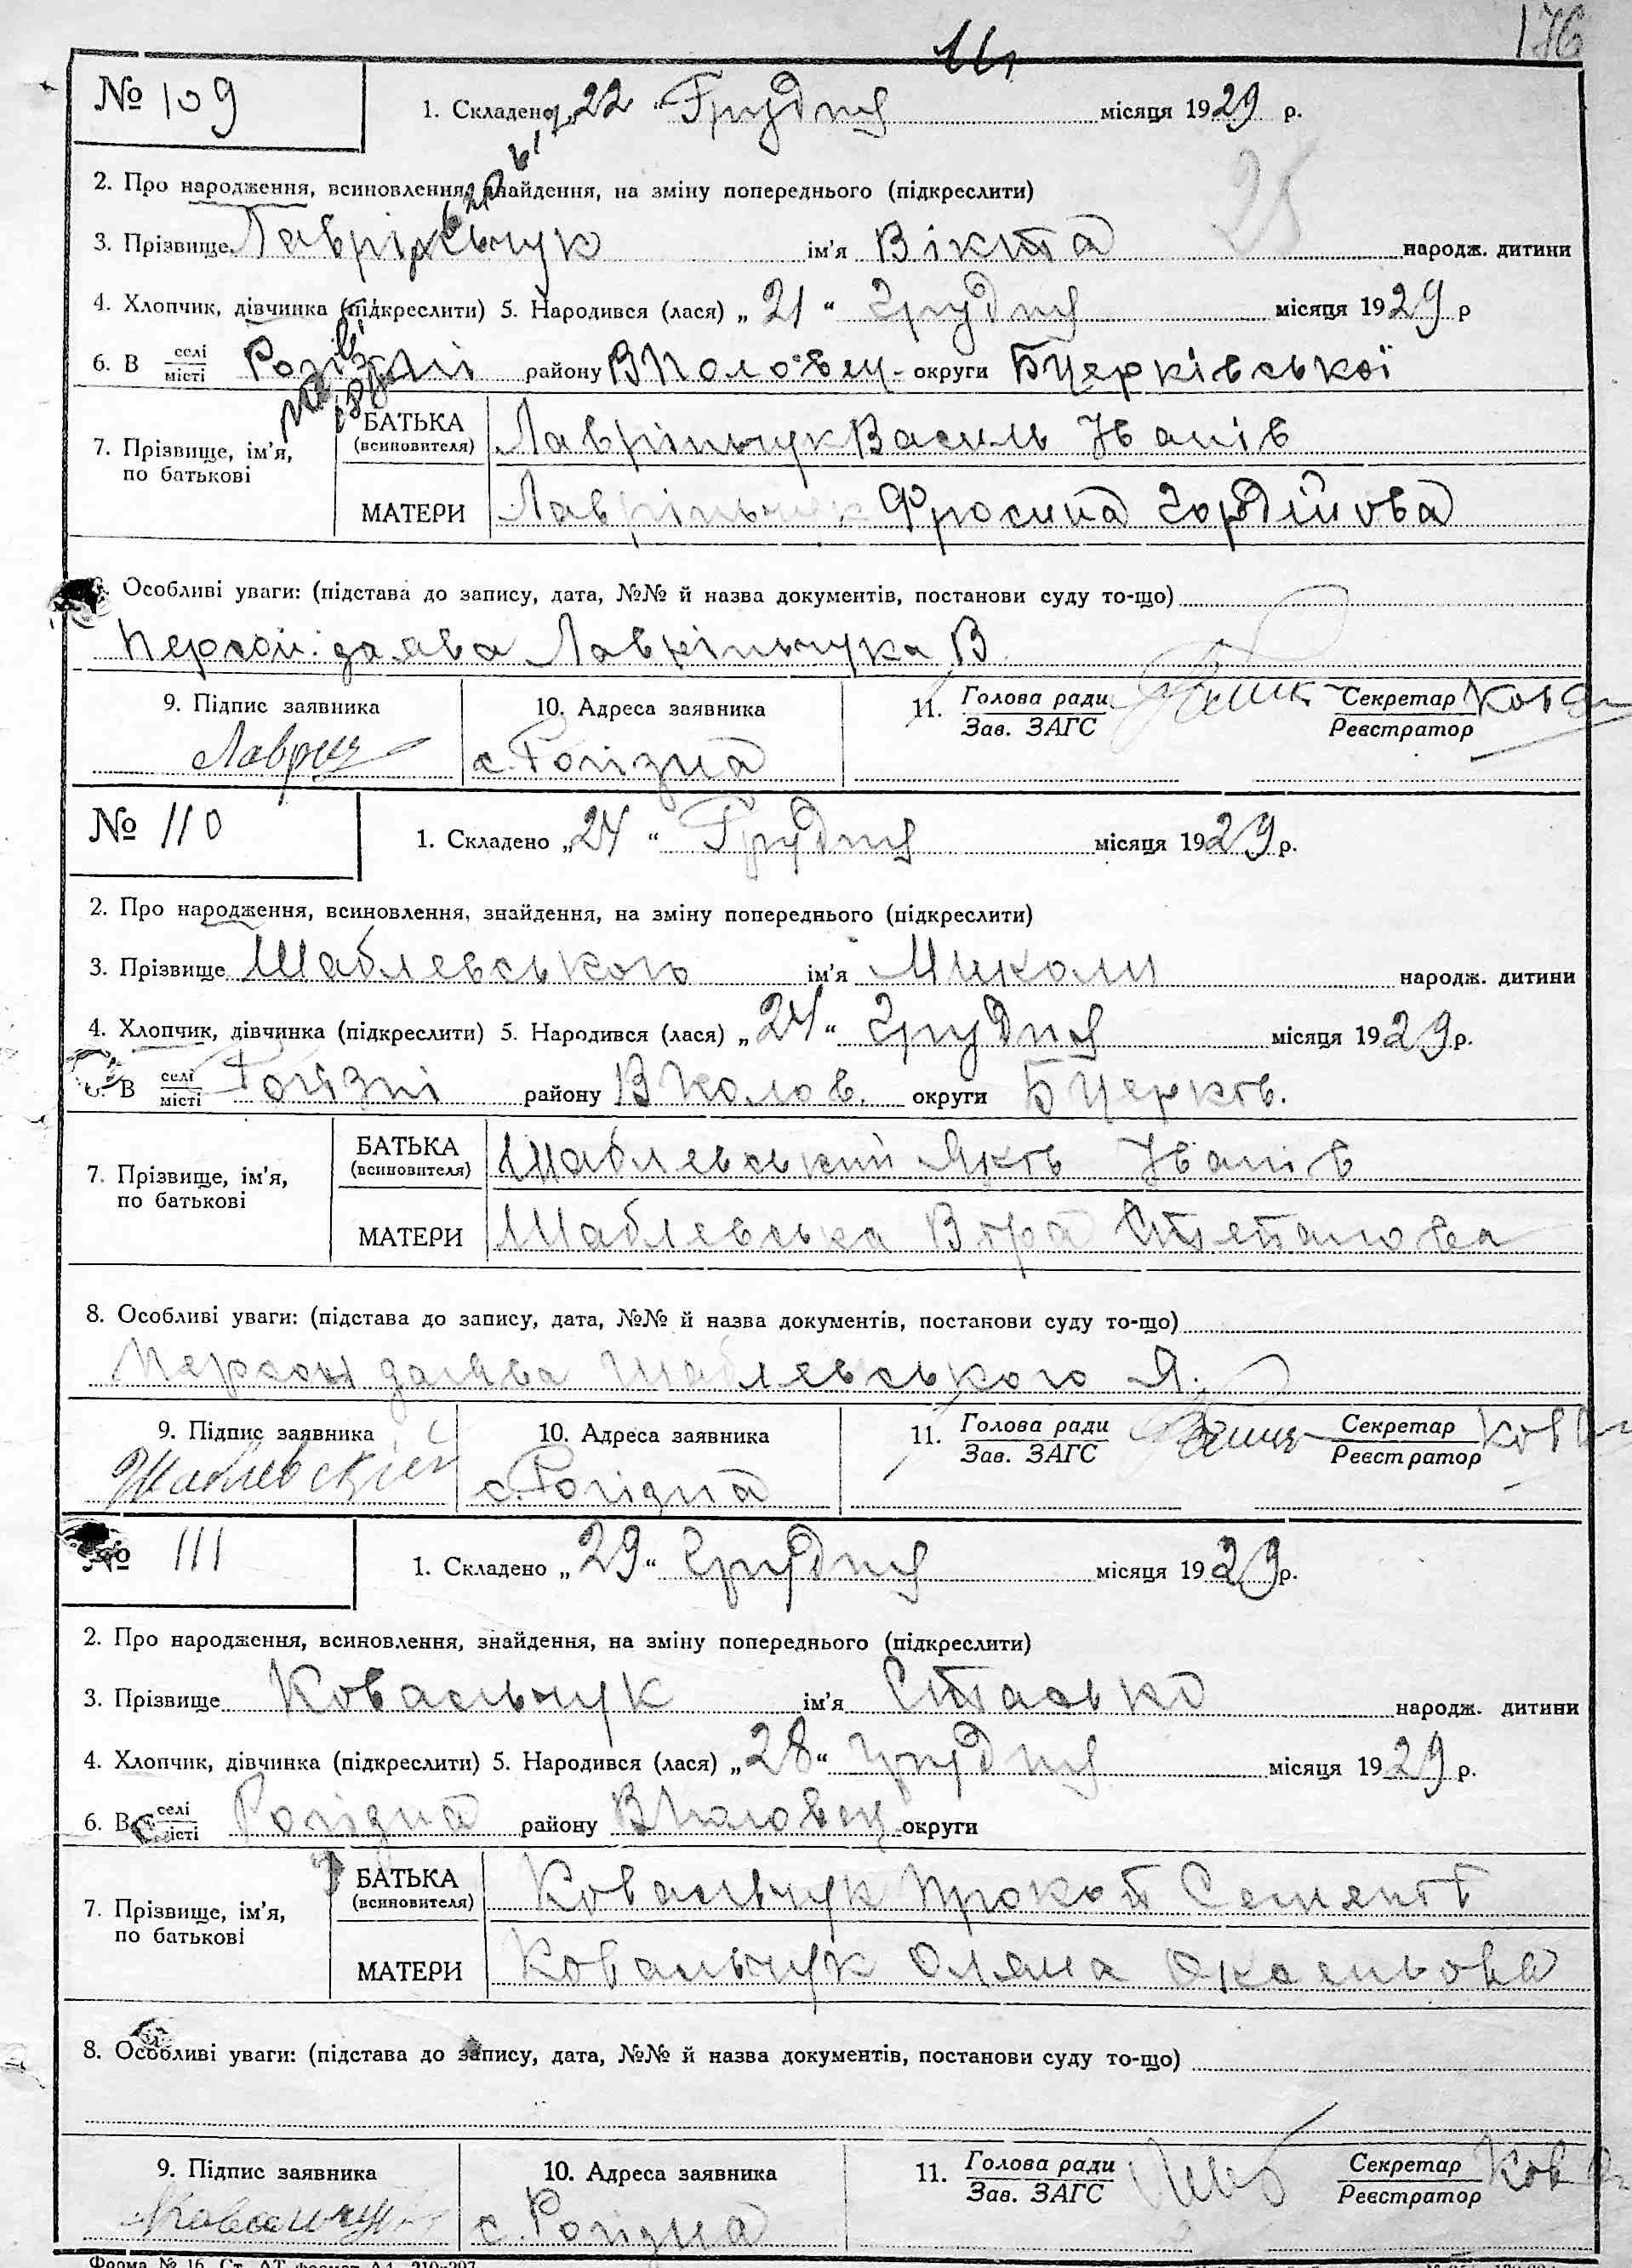 176
№ 109
1. Складено „22“ Грудня місяця 1929 р.
2. Про народження, всиновлення, знайдення, на зміну попереднього (підкреслити)
25
3. Прізвище Лаврінчук ім'я Вікта народж. дитини
4. Хлопчик, дівчинка (підкреслити) 5. Народився (лася) „21“ грудня місяця 1929 р
6. В селі місті Рогізні району ВПоловец- округи БЦерківської
7. Прізвище, ім'я, по батькові
БАТЬКА (всиновителя) Лаврінчук Василь Іванів
МАТЕРИ Лаврінчук Фросина Гордійова
Особливі уваги: (підстава до запису, дата, №№ й назва документів, постанови суду то-що)
Персон. заява Лаврінчука В
9. Підпис заявника 10. Адреса заявника 11. Голова ради Зав. ЗАГС Секретар Реєстратор
с. Рогізна
№ 110
1. Складено „24“ Грудня місяця 1929 р.
2. Про народження, всиновлення, знайдення, на зміну попереднього (підкреслити)
3. Прізвище Шаблевського ім'я Миколи народж. дитини
4. Хлопчик, дівчинка (підкреслити) 5. Народився (лася) „24“ грудня місяця 1929 р.
6. В селі місті Рогізні району ВПолов. округи БЦерків.
7. Прізвище, ім'я, по батькові
БАТЬКА (всиновителя) Шаблевський Яків Іванів
МАТЕРИ Шаблевська Віра Степанова
8. Особливі уваги: (підстава до запису, дата, №№ й назва документів, постанови суду то-що)
Персон заява Шаблевського Я.
9. Підпис заявника 10. Адреса заявника 11. Голова ради Зав. ЗАГС Секретар Реєстратор
Шаблевский с. Рогізна
№ 111
1. Складено „29“ грудня місяця 1929 р.
2. Про народження, всиновлення, знайдення, на зміну попереднього (підкреслити)
3. Прізвище Ковальчук ім'я Стасько народж. дитини
4. Хлопчик, дівчинка (підкреслити) 5. Народився (лася) „28“ грудня місяця 1929 р.
6. В селі місті Рогізна району ВПоловец округи
7. Прізвище, ім'я, по батькові
БАТЬКА (всиновителя) Ковальчук Прокоп Семенів
МАТЕРИ Ковальчук Оляна Оксеньова
8. Особливі уваги: (підстава до запису, дата, №№ й назва документів, постанови суду то-що)
9. Підпис заявника 10. Адреса заявника 11. Голова ради Зав. ЗАГС Секретар Реєстратор
Ковальчук с. Рогізна